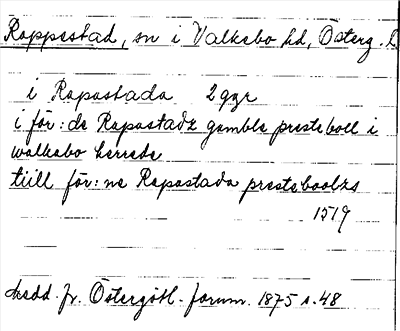 Rappestad, sn i Valkebo hd, Österg. l
i Rapastada 2 ggr
i för: de Rapastadz gamble presteboll i
walkabo herrede
tiill för: ne Rapastada presteboolzs
1519
Medd. fr. Östergötl. fornm. 1875 s. 48